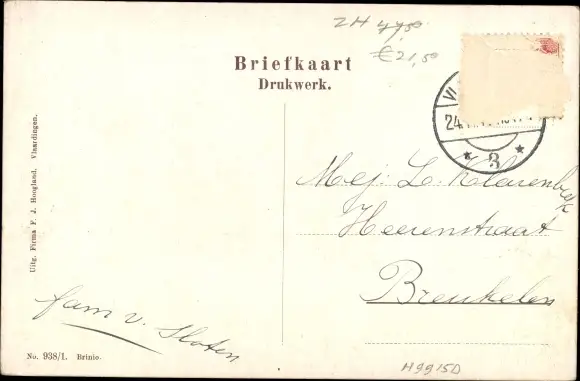 ZH 47,50
€21,50
Briefkaart
Drukwerk.
VL
24
3
Mej. L. Klarenbeek
Heerenstraat
Breukelen
fam v. Sloten
Uitg. Firma F. J. Hoogland. Vlaardingen.
No. 938/1. Brinio.
H9915D